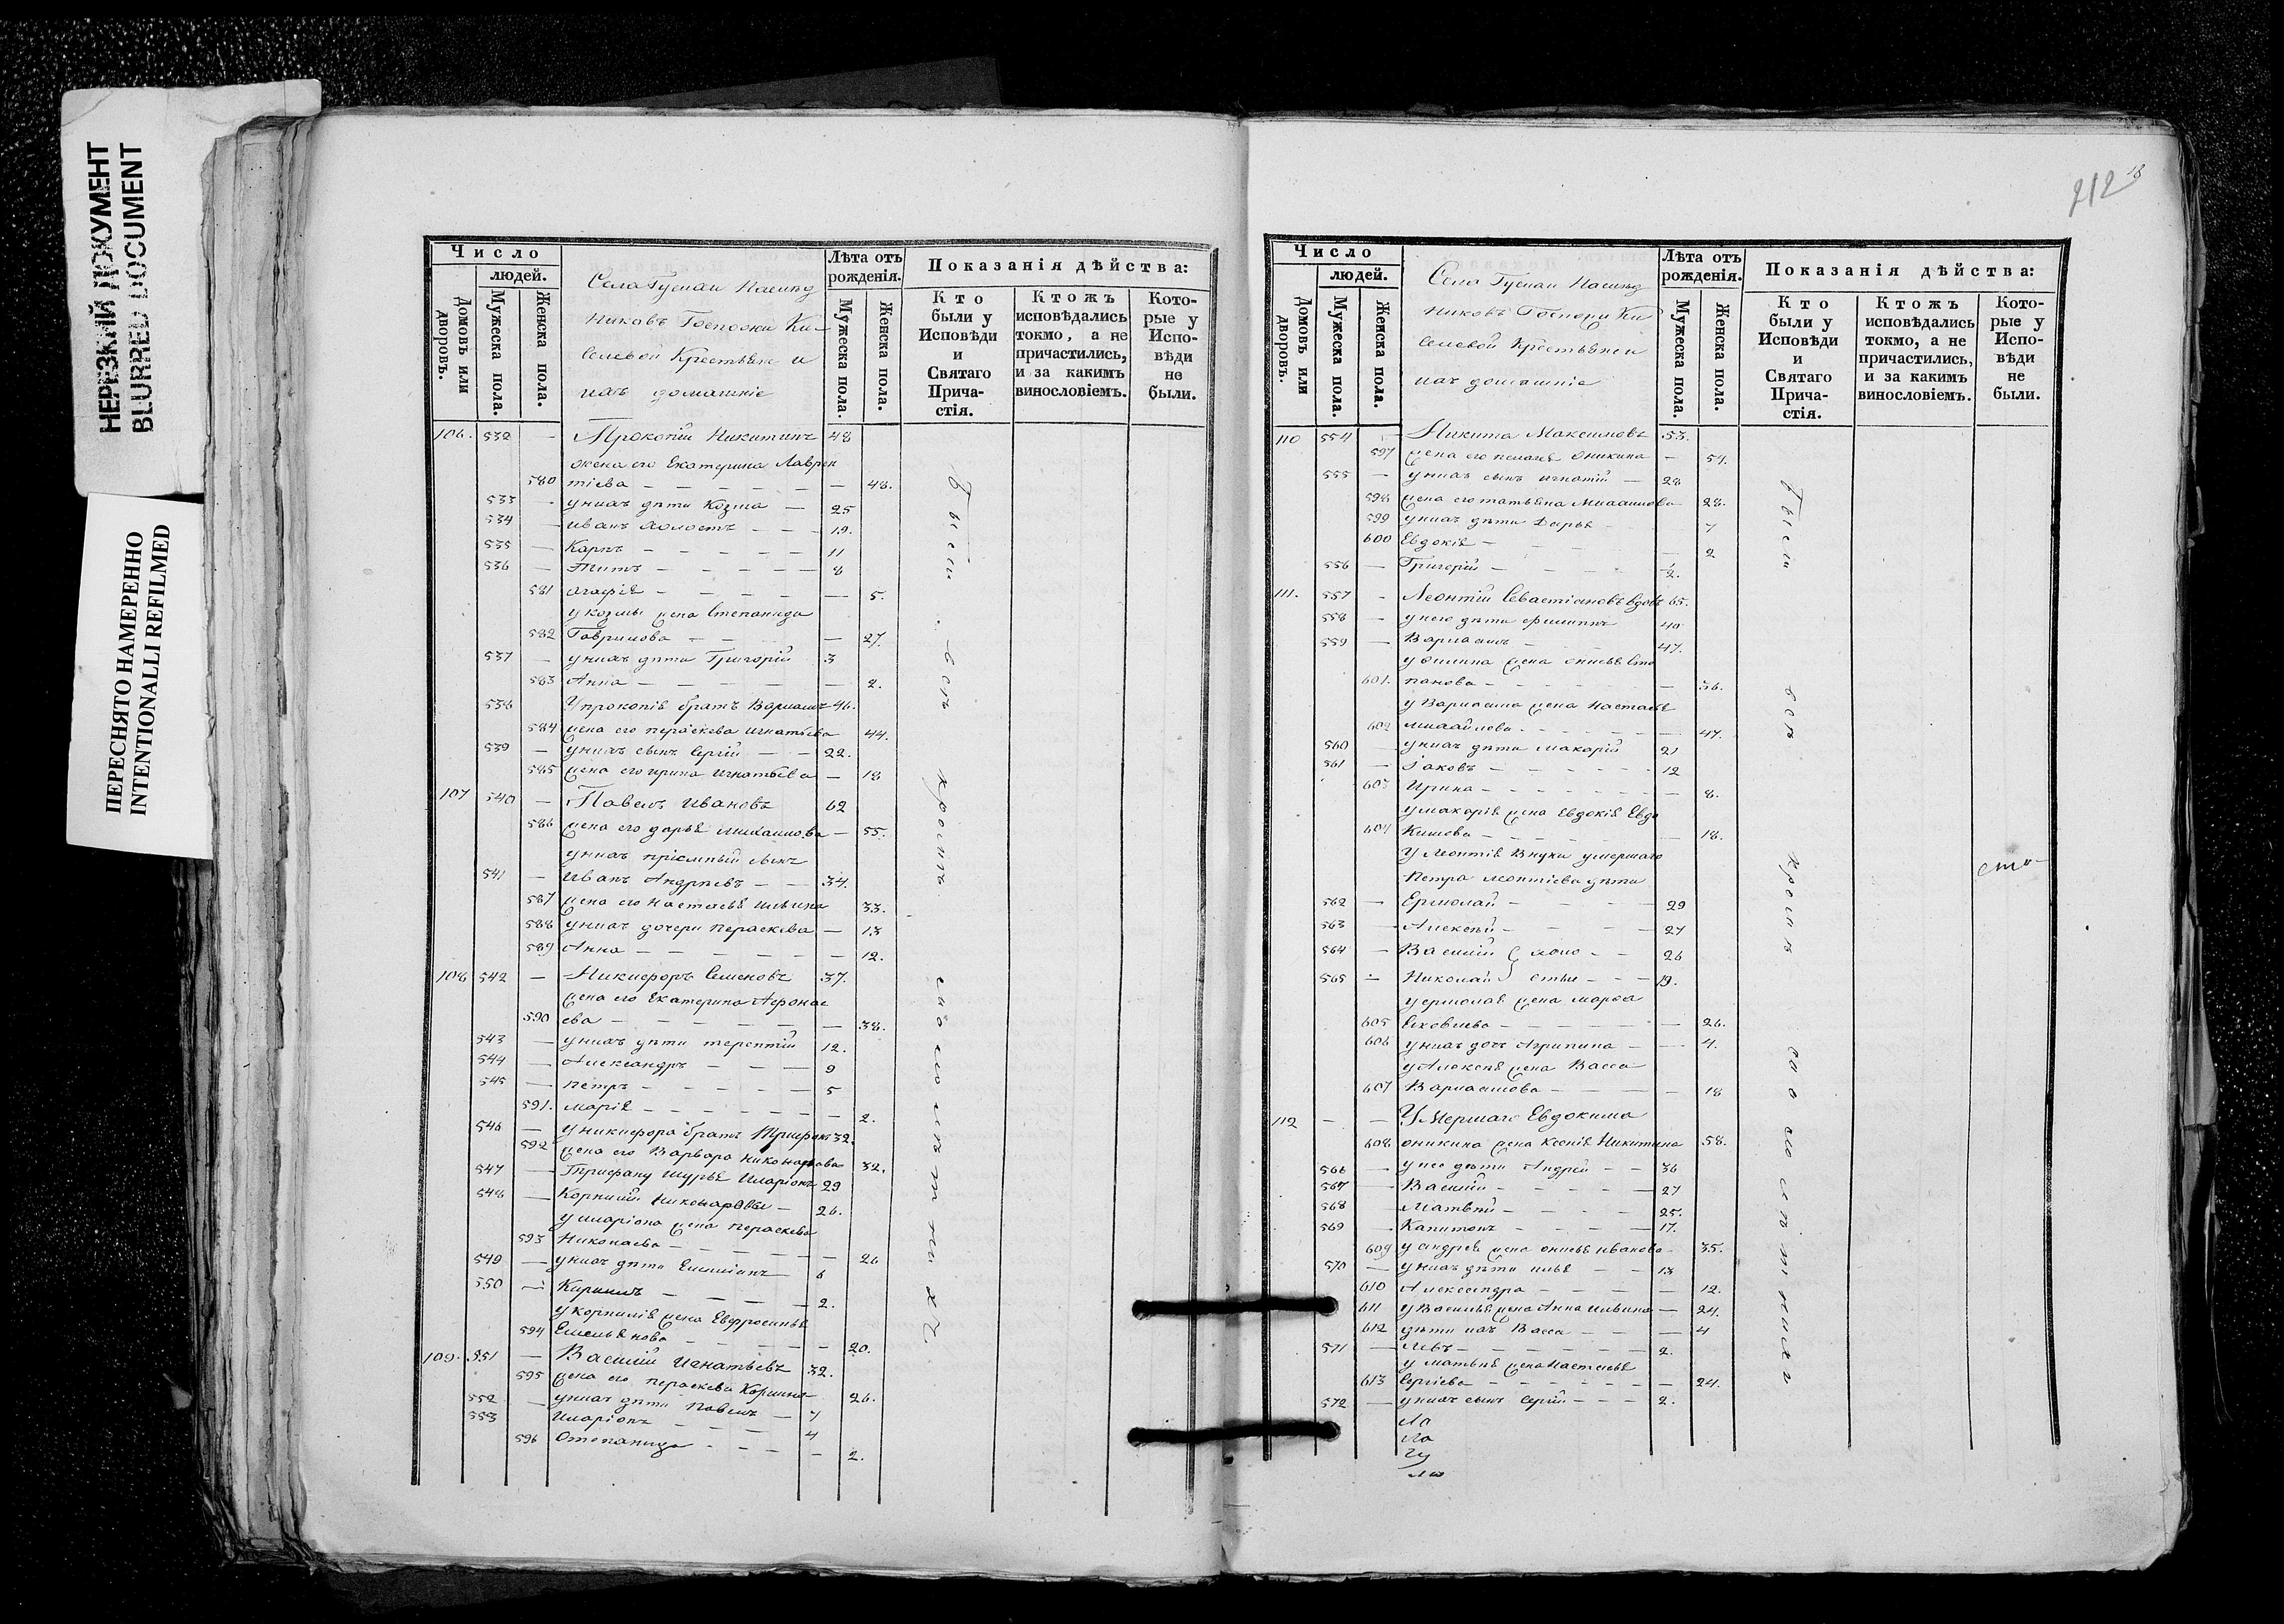 НЕРЕЗКИЙ ДОКУМЕНТ
BLURRED DOCUMENT
ПЕРЕСНЯТО НАМЕРЕННО
INTENTIONALLI REFILMED
Число
людей.
Домовъ или дворовъ.
Мужеска пола.
Женска пола.
Села Гуслаи Наслѣд
никовъ Госпожи Ки-
селевой Крестьяне и
ихъ домашніе
Лѣта отъ рожденія.
Мужеска пола.
Женска пола.
Показанія дѣйства:
Кто были у Исповѣди и Святаго Причастія.
Ктожъ исповѣдались токмо, а не причастились, и за какимъ винословіемъ.
Которые у Исповѣди не были.
106. 532 – Прокопій Никитинъ 48
жена его Екатерина Лаврен
580 тіева – 48.
533 – у нихъ дѣти Козма – 25
534 – Иванъ холостъ – 19.
535 – Карпъ – 11
536 – Титъ – 8
581 Агафія – 5.
у козмы жена Степанида
582 Гаврилова – 27.
537 – у нихъ дѣти Григорій 3
583 Анна – 2.
538 У прокопія братъ Варлаамъ 46.
584 жена его параскева Игнатьева 44.
539 – у нихъ сынъ Сергій – 22.
585 жена его ирина Игнатьева – 18
107 540 – Павелъ Ивановъ 62
586 жена его дарья михаилова – 55.
у нихъ пріемный сынъ
541 – Иванъ Андреевъ – 34.
587 жена его Настасья ильина 33.
588 у нихъ дочери параскева – 13
589 Анна – 12.
108 542 – Никифоръ Семеновъ 37.
жена его Екатерина Афонас
590 ева – 38.
543 – у нихъ дѣти терентій 12.
544 – Александръ – 9
545 – петръ – 5
591. марія – 2.
546 – у никифора братъ Трифонъ 32.
592 жена его Варвара Никонорова 32.
547 – Трифану шурья Иларіонъ 29
548 – Корнилій Никоноровы – 26.
у иларіона жена параскева
593 Николаева – 26
549 – у нихъ дѣти Емиліанъ 6
550 – Кирилъ – 2.
у корнилія жена Евфросинья
594 Емельянова – 20.
109. 551 – Василій Игнатьевъ 32.
595 жена его параскева Корнил 26.
552 – у нихъ дѣти Павелъ – 7
553 Иларіонъ – 4
596 Степанида – 2.
Были
вси
кромѣ
малолѣтнихъ
212
Число
людей.
Домовъ или дворовъ.
Мужеска пола.
Женска пола.
Села Гуслаи Наслѣд
никовъ Госпожи Ки
селевой Крестьяне и
ихъ домашніе
Лѣта отъ рожденія.
Мужеска пола.
Женска пола.
Показанія дѣйства:
Кто были у Исповѣди и Святаго Причастія.
Ктожъ исповѣдались токмо, а не причастились, и за какимъ винословіемъ.
Которые у Исповѣди не были.
110 554 – Никита Максимовъ 53.
597 жена его пелагея Оникина – 51.
555 – у нихъ сынъ игнатій – 28
598 жена его татьяна Михаилова 28.
599 у нихъ дѣти Дарья 7
600 Евдокія – 2
556 – Григорій – ½.
111. 557 – Леонтій Севастіановъ вдовъ 65.
558 – у него дѣти филиппъ 40
559 – Варлаамъ 47.
у филипа жена анисья Сте
601. панова – 36.
у Варлаама жена Настасья
602 михайлова – 47.
560 – у нихъ дѣти Макарій 21
561 – іаковъ – 12
603 Ирина – 8.
у макарія жена Евдокія Евдо
604 Кимова – 18.
У Леонтія Внуки умершаго
Петра Леонтіева дѣти
562 – Ермолай – 29
563 – Алексѣй – 27
564 – Василій } холо – 26
565 – Николай } сты – 19.
у ермолая жена марфа
605 Яковлева – 26.
606 у нихъ дочь Агрипина – 4.
у Алексѣя жена Васса
607 Варлаамова – 18
112 – – Умершаго Евдокима
608 оникина жена ксенія Никитина 58.
566 – у нее дѣти Андрей – 36
567 – Василій – 27
568 – Матвѣй – 25.
569 – Капитонъ – 17.
609 у андрея жена анисья иванова 35.
570 – у нихъ дѣти илья – 13
610 Александра – 12.
611 у Василья жена Анна ильина – 24.
612 дѣти ихъ Васса – 4
571 – Левъ – 2.
у матвѣя жена настасья
613 Сергіева – 24.
572 – у нихъ сынъ Сергій – 2.
Были
вси
кромѣ